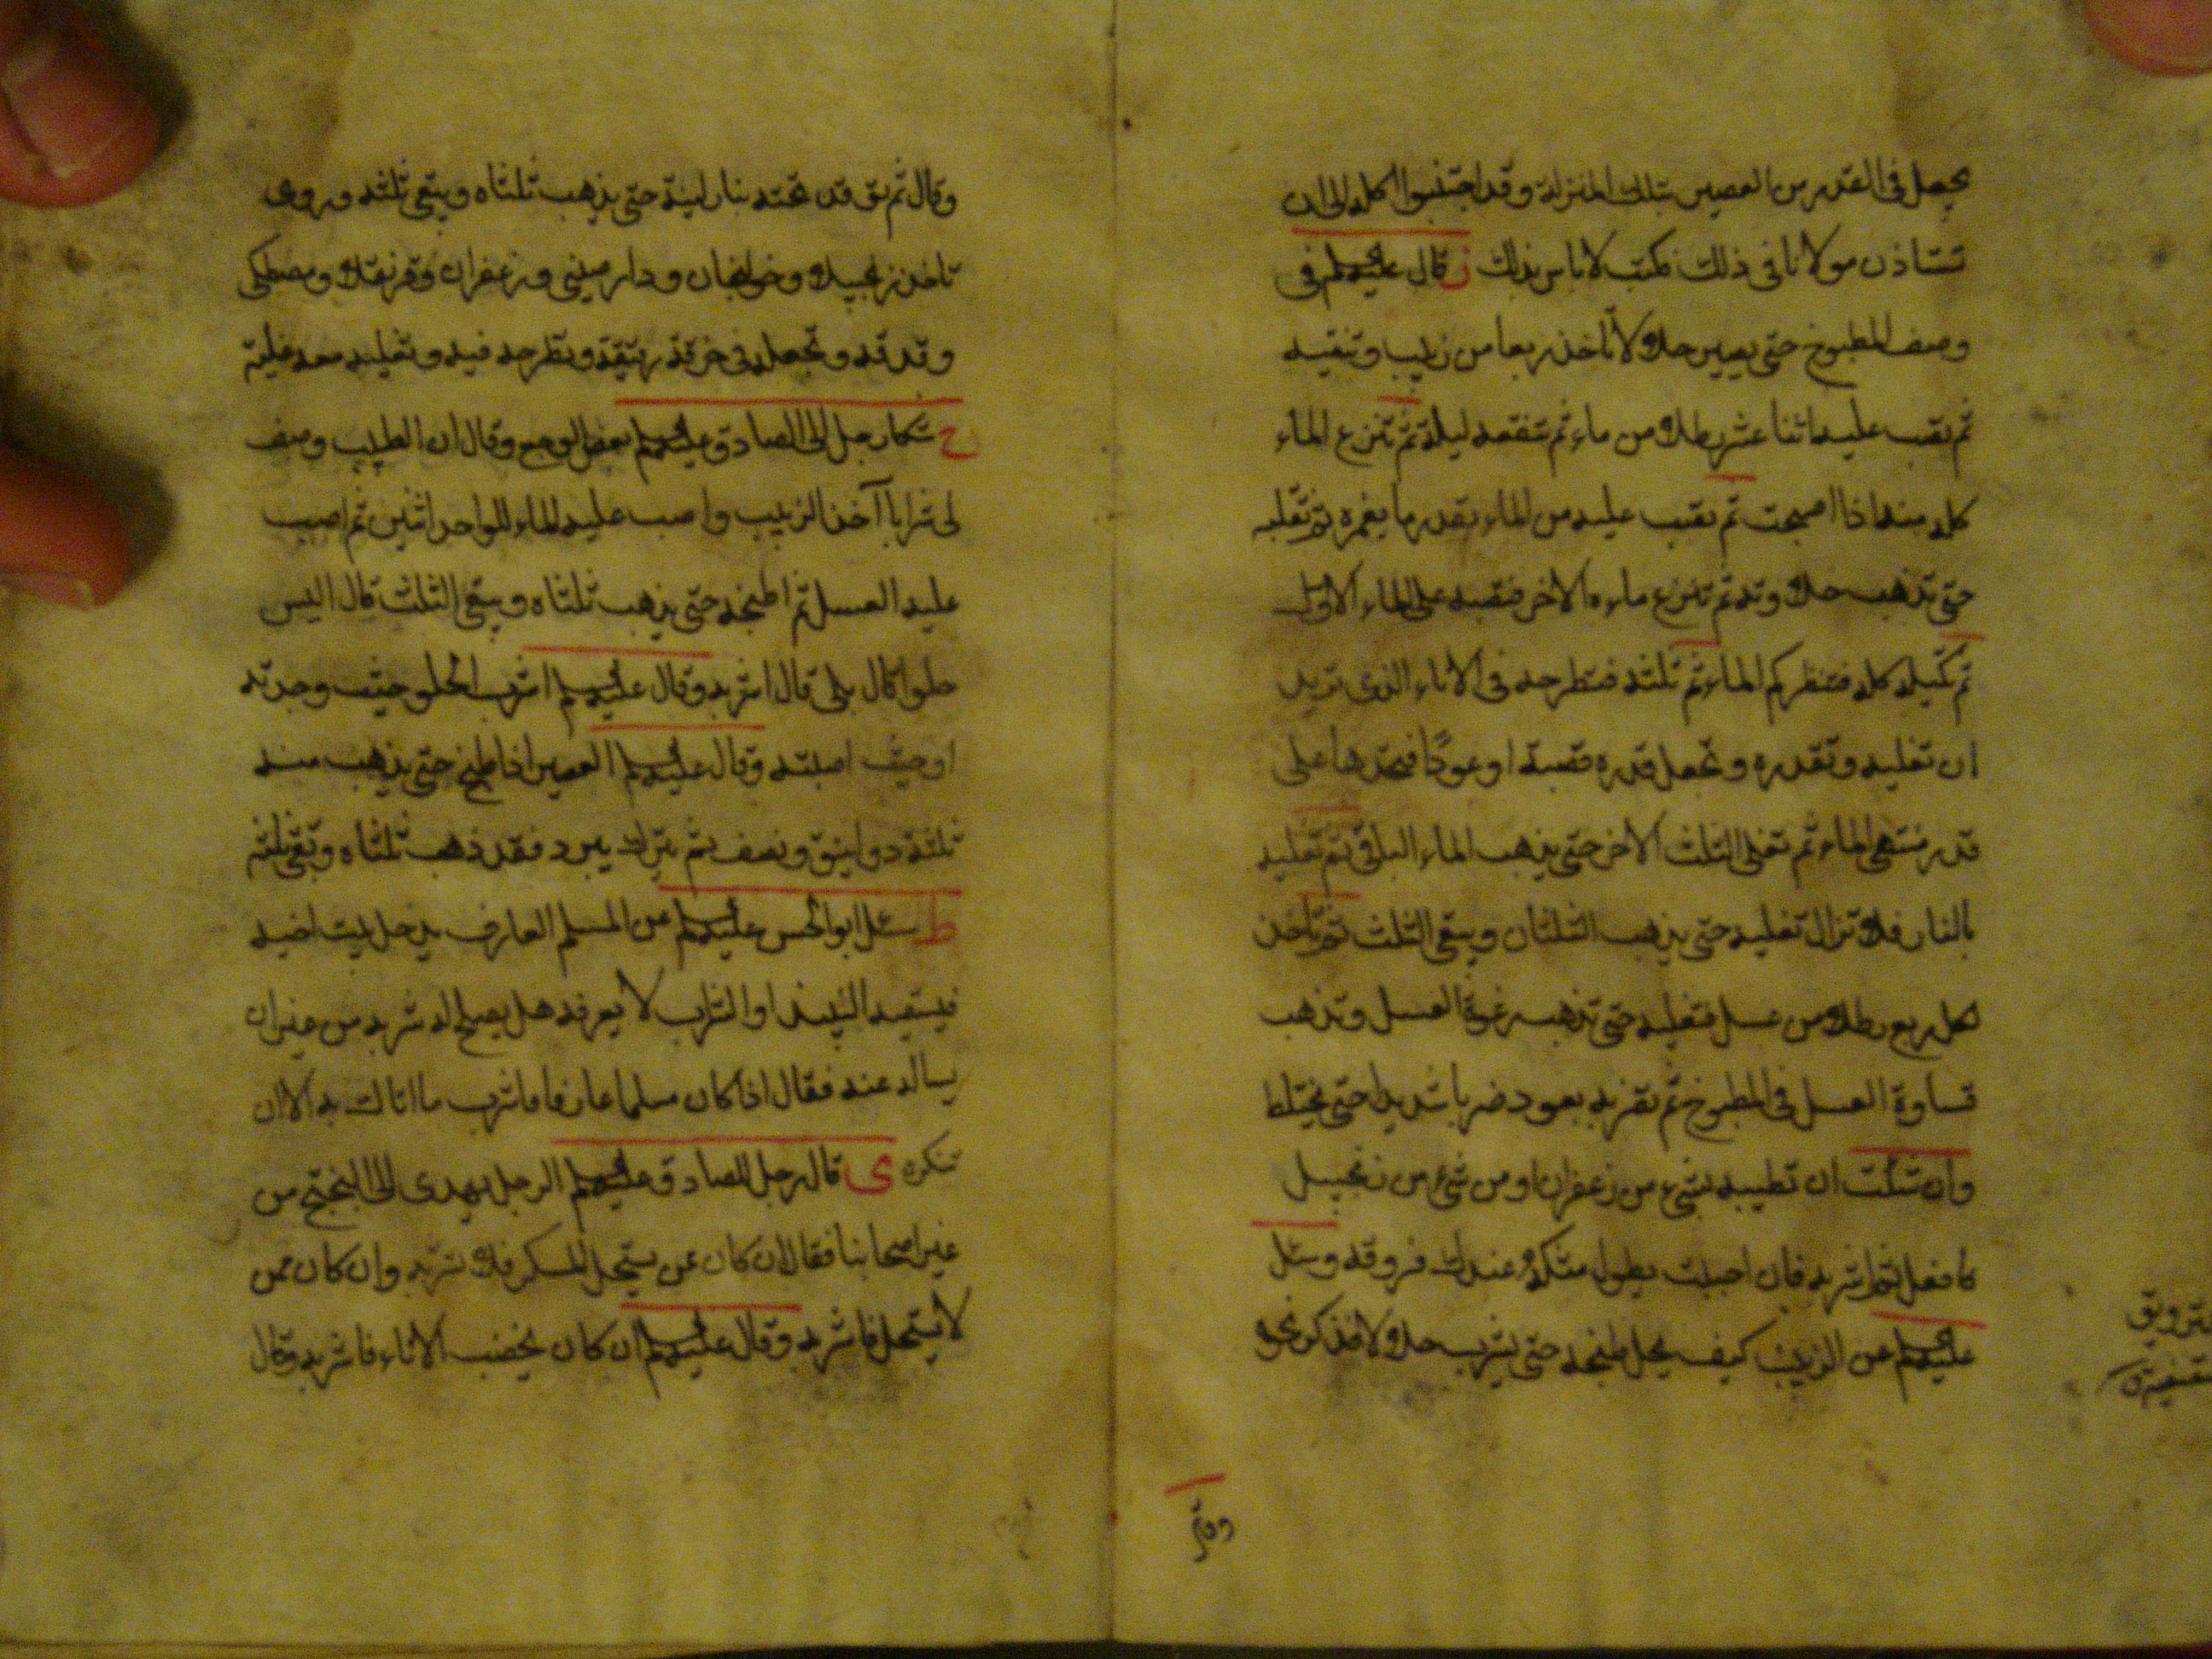 يجعل في القدر من العصير بتلك المنزلة وقد اجتنبوا اكله الى ان
تستاذن مولانا في ذلك فكتب لا باس بذلك ز قال عليه السلم في
وصف المطبوخ حتى يصير حلالا تاخذ ربعا من زبيب وتنقيه
ثم تصب عليه اثنا عشر رطلا من ماء ثم تنقعه ليلة ثم تنزع الماء
كله منه اذا اصبحت ثم تصب عليه من الماء بقدر ما يغمره ثم تغليه
حتى تذهب حلاوته ثم تنزع ماءه الاخر فتصبه على الماء الاول
ثم تكيله كله فتنظر كم الماء ثم ثلثه فتطرحه في الاناء الذى تريد
ان تغليه وتقدره وتجعل قدره قصبة او عودًا فتحدها على
قدر منتهى الماء ثم تغلى الثلث الاخر حتى يذهب الماء الباقي ثم تغليه
بالنار فلا تزال تغليه حتى يذهب الثلثان ويبقى الثلث ثم تاخذ
لكل ربع رطلا من عسل فتغليه حتى تذهب رغوة العسل وتذهب
قساوة العسل في المطبوخ ثم تضربه بعود ضربا شديدا حتى يختلط
وان شئت ان تطيبه بشيء من زعفران او من شيء من زنجبيل
فافعل ثم اشربه فان احببت يطول مكثه عندك فروقه وسئل
عليه السلم عن الزبيب كيف يحل طبخه حتى يشرب حلالا فذكر نحوه
وقال
وقال ثم توقد تحته بنار لينة حتى يذهب ثلثاه ويبقى ثلثه وروى
تاخذ زنجبيلا وخولنجان ودارصيني وزعفران وقرنفلا ومصطكى
وتدقه وتجعله في خرقة رقيقة وتطرحه فيه وتغليه معه غلية
ح شكا رجل الى الصادق عليه السلم بعض الوجع وقال ان الطبيب وصف
لى شرابا آخذ الزبيب واصب عليه الماء للواحد اثنين ثم اصب
عليه العسل ثم اطبخه حتى يذهب ثلثاه ويبقى الثلث قال اليس
حلوا قال بلى قال اشربه وقال عليه السلم اشرب الحلو حيث وجدته
او حيث اصبته وقال عليه السلم العصير اذا طبخ حتى يذهب منه
ثلثة دوانيق ونصف ثم يترك يبرد فقد ذهب ثلثاه وبقى ثلثه
ط سئل ابو الحسن عليه السلم عن المسلم العارف يدخل بيت اخيه
فيسقيه النبيذ او الشراب لا يعرفه هل يصلح له شربه من غير ان
يساله عنه فقال اذا كان مسلما عارفا فاشرب ما اتاك به الا ان
تنكره ى قال رجل للصادق عليه السلم الرجل يهدى الى البختج من
غير اصحابنا فقال ان كان ممن يستحل المسكر فلا تشربه وان كان ممن
لا يستحل فاشربه وقال عليه السلم ان كان يخضب الاناء فاشربه وقال